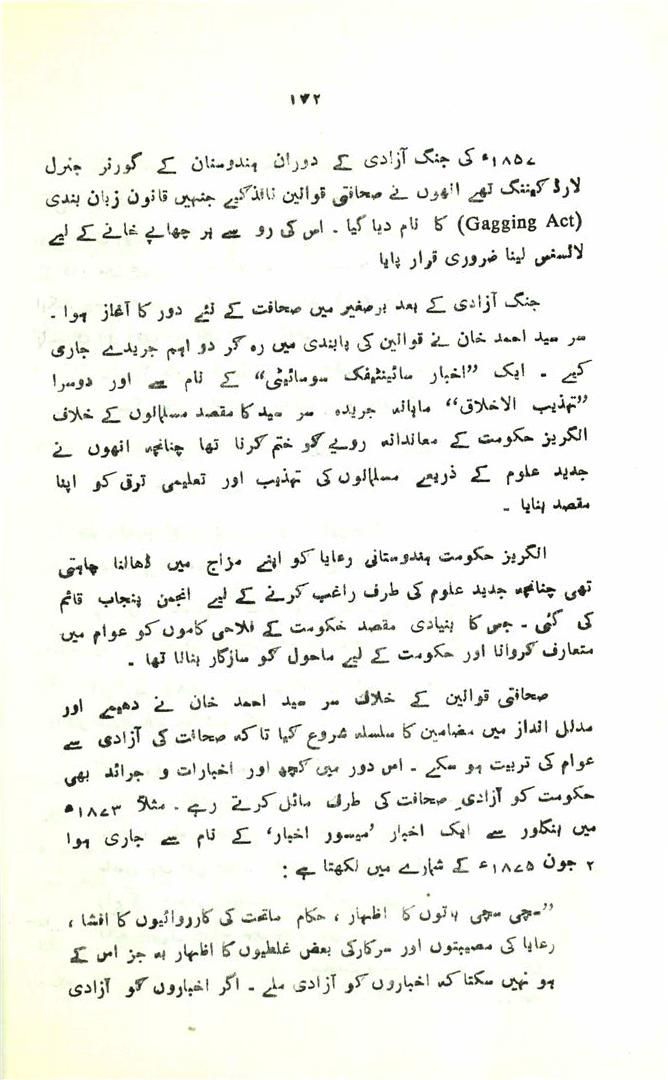 ۱۷۲
۱۸۵۷ء کی جنگ آزادی کے دوران ہندوستان کے گورنر جنرل
لارڈ کیننگ تھے انھوں نے صحافتی قوانین نافذ کیے جنہیں قانون زبان بندی
(Gagging Act) کا نام دیا گیا ۔ اس کی رو سے ہر چھاپے خانے کے لیے
لائسنس لینا ضروری قرار پایا
جنگ آزادی کے بعد برصغیر میں صحافت کے نئے دور کا آغاز ہوا ۔
سر سید احمد خان نے قوانین کی پابندی میں رہ کر دو اہم جریدے جاری
کیے ۔ ایک ”اخبار سائینٹیفک سوسائیٹی“ کے نام سے اور دوسرا
”تہذیب الاخلاق“ ماہانہ جریدہ سر سید کا مقصد مسلمانوں کے خلاف
انگریز حکومت کے معاندانہ رویے کو ختم کرنا تھا چنانچہ انھوں نے
جدید علوم کے ذریعے مسلمانوں کی تہذیب اور تعلیمی ترقی کو اپنا
مقصد بنایا ۔
انگریز حکومت ہندوستانی رعایا کو اپنے مزاج میں ڈھالنا چاہتی
تھی چنانچہ جدید علوم کی طرف راغب کرنے کے لیے انجمن پنجاب قائم
کی گئی ۔ جس کا بنیادی مقصد حکومت کے فلاحی کاموں کو عوام میں
متعارف کروانا اور حکومت کے لیے ماحول کو سازگار بنانا تھا ۔
صحافتی قوانین کے خلاف سر سید احمد خان نے دھیمے اور
مدلل انداز میں مضامین کا سلسلہ شروع کیا تاکہ صحافت کی آزادی سے
عوام کی تربیت ہو سکے ۔ اس دور میں کچھ اور اخبارات و جرائد بھی
حکومت کو آزادیِ صحافت کی طرف مائل کرتے رہے ۔ مثلاً ۱۸۷۳ء
میں بنگلور سے ایک اخبار ’میسور اخبار‘ کے نام سے جاری ہوا
۲ جون ۱۸۷۵ء کے شمارے میں لکھتا ہے :
”سچی سچی باتوں کا اظہار ، حکام ماتحت کی کارروائیوں کا افشا ،
رعایا کی مصیبتوں اور سرکار کی بعض غلطیوں کا اظہار بہ جز اس کے
ہو نہیں سکتا کہ اخباروں کو آزادی ملے ۔ اگر اخباروں کو آزادی